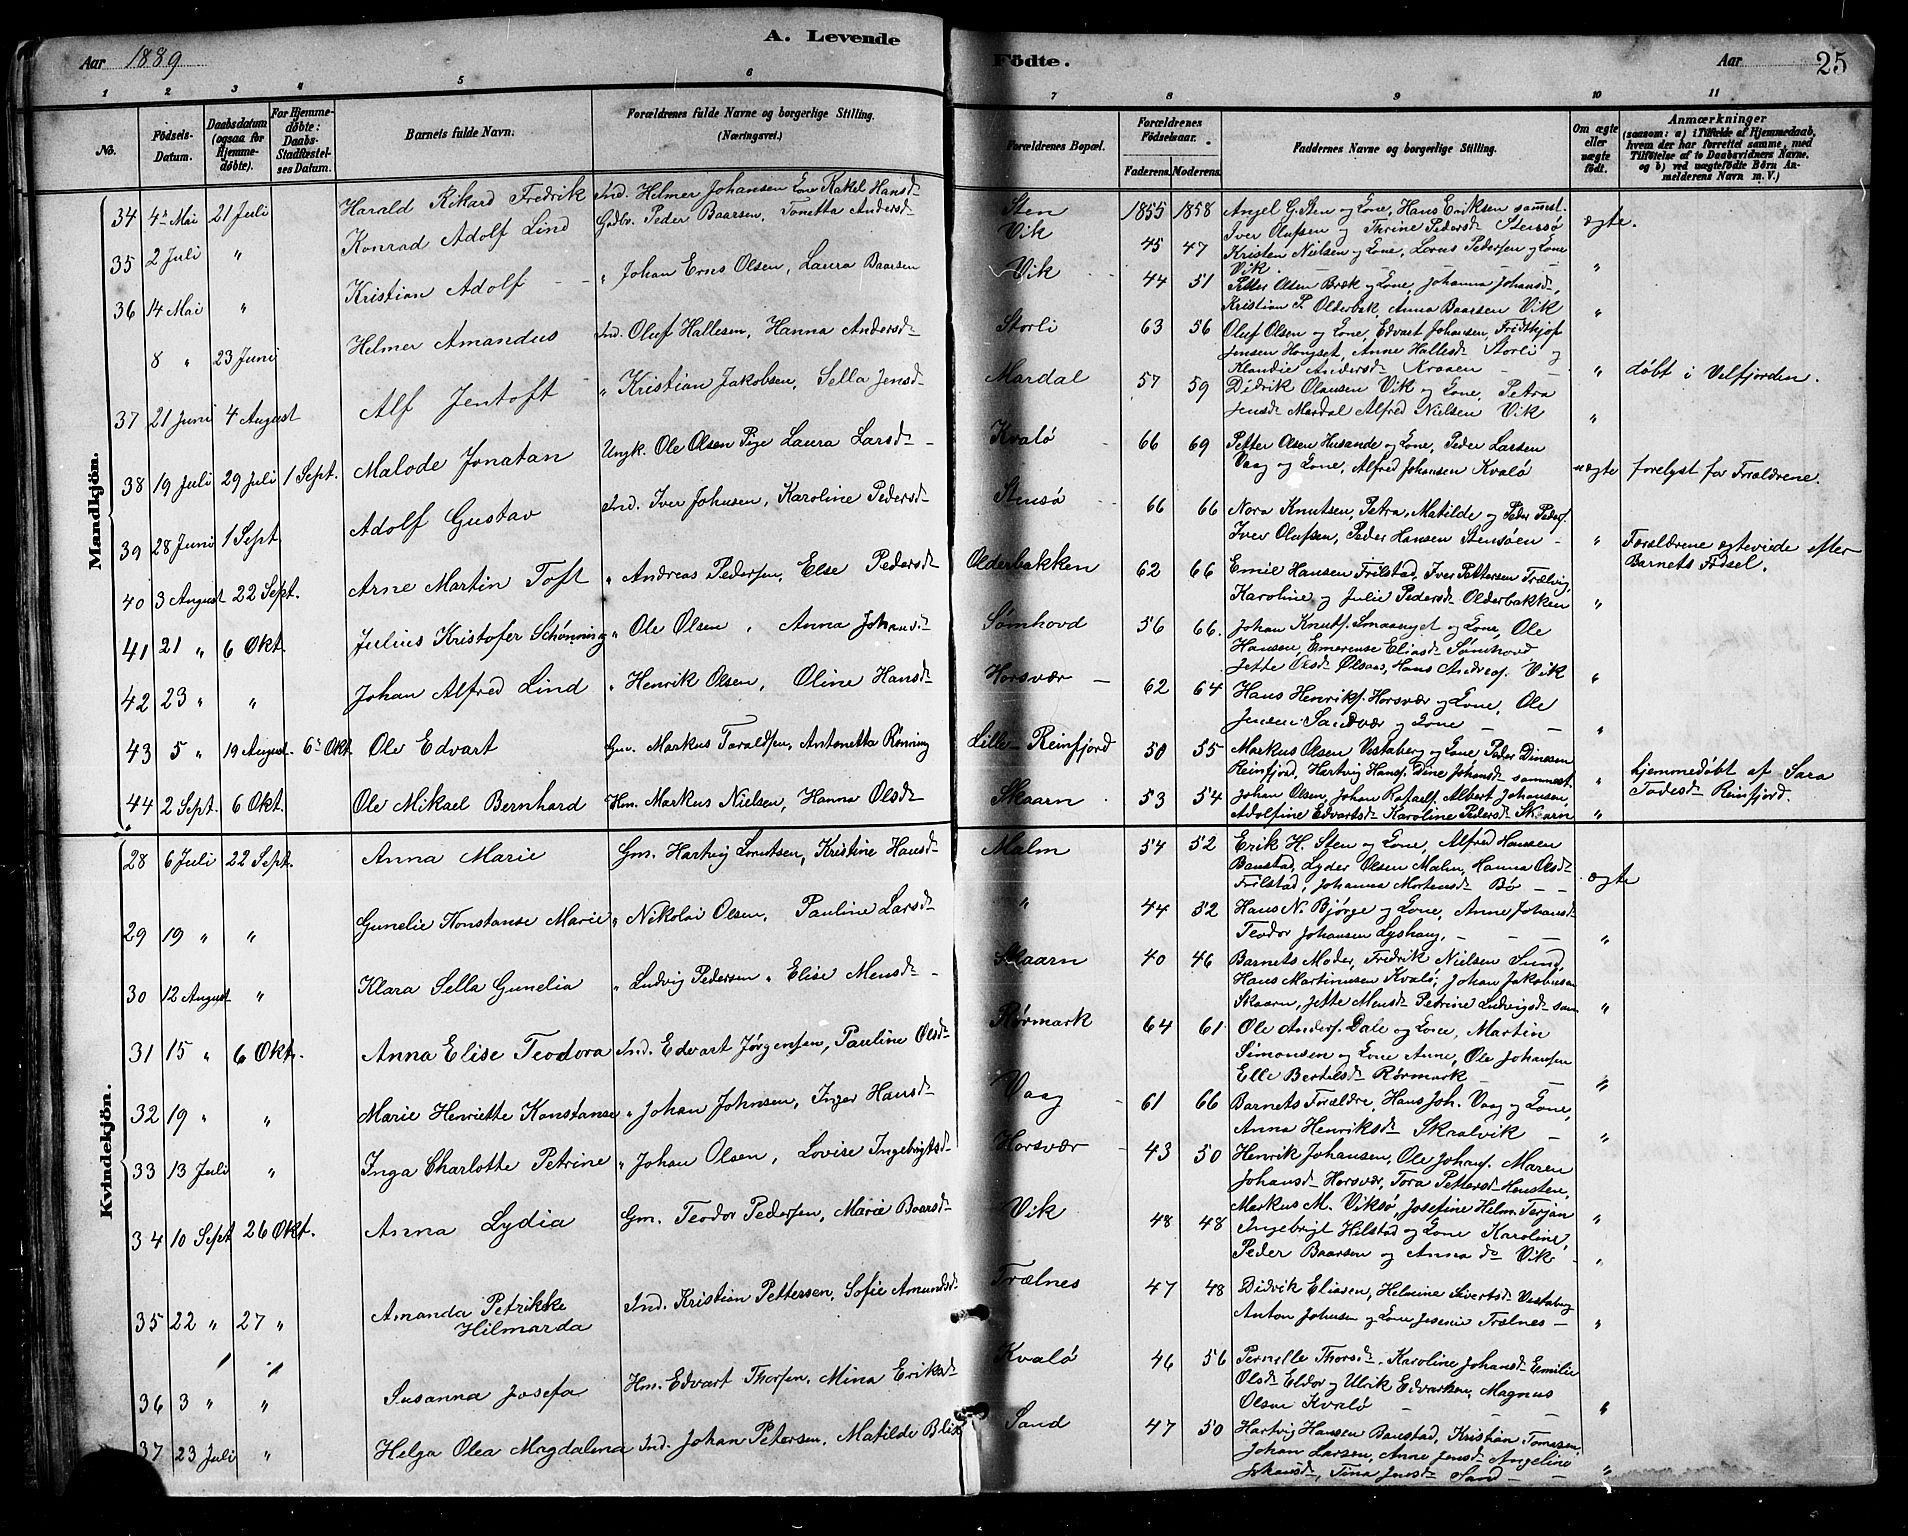 Aar 1889
A. Levende
Födte.
Aar
25
1 2 3 4 5 6 7 8 9 10 11
No.
Födsels-Datum.
Daabsdatum (ogsaa for Hjemmedøbte).
For Hjemmedøbte: Daabs-Stadfæstelses Datum.
Barnets fulde Navn.
Forældrenes fulde Navne og borgerlige Stilling. (Næringsvei.)
Forældrenes Bopæl.
Forældrenes Födselsaar.
Faderens. Moderens.
Faddernes Navne og borgerlige Stilling.
Om ægte eller uægte födt.
Anmærkninger (saasom: a) i Tilfælde af Hjemmedaab, hvem der har forrettet samme, med Tilföielse af to Daabsvidners Navne, og b) ved uægtefödte Börn Anmelderens Navn m. V.)
Mandkjön.
34 4de Mai 21 Juli Harald Rikard Fredrik Ind. Helmer Johansen Kone Rakel Hansd. Sten 1855 1858 Angel G. Sten og Kone, Hans Eriksen sammest. Iver Olufsen og Thrine Pedersd. Stensø ægte.
35 2 Juli " Konrad Adolf Lind Gdbr. Peder Baarsen, Tonetta Andersd. Vik 45 47 Kristen Nielsen og Kone, Lorns Pedersen og Kone Vik. "
36 14 Mai " Kristian Adolf " Johan Erns Olsen, Laura Baarsen Vik 44 51 Petter Olsen Bræk og Kone, Johanna Johansd., Kristian P. Olderbak, Anna Baarsen Vik "
8 " 23 Juni Helmer Amandus Ind. Oluf Hallesen, Hanna Andersd. Storli 63 56 Oluf Olsen og Kone, Edvart Johansen, Fridthjof Jensen Hongset, Anne Hallesd. Storli og Klaudie Andersd. Kroken " døbt i Velfjorden.
37 21 Juni 4 August Alf Jentoft " Kristian Jakobsen, Sella Jensd. Mardal 57 59 Didrik Olausen Vik og Kone, Petra Jensd. Mardal Alfred Nielsen Vik "
38 19 Juli 29 Juli 1 Sept. Malode Jonatan Ungk. Ole Olsen Pige Laura Larsd. Kvalø 66 69 Petter Olsen Husande og Kone, Peder Larsen Vaag og Kone, Alfred Johansen Kvalø uægte forelyst for Forældrene.
39 28 Juni 1 Sept Adolf Gustav Ind. Iver Johnsen, Karoline Pedersd. Stensø 66 66 Nora Knutsen, Petra, Matilde og Peder Peders. Iver Olufsen, Peder Hansen Stensøen " Forældrene egteviede efter Barnets Fødsel.
40 3 August 22 Sept. Arne Martin Toft " Andreas Pedersen, Else Pedersd. Olderbakken 62 66 Emil Hansen Frilstad, Iver Pettersen Trælvig, Karoline og Julie Pedersd. Olderbakken "
41 21 " 6 Okt. Julius Kristofer Schønning " Ole Olsen, Anna Johansd. Sømhovd 56 66. Johan Knuts. Smaanget og Kone, Ole Hansen, Emerense Eliasd. Sømhovd Jette Olsd. Olsaas, Hans Andreas. Vik "
42 23 " " Johan Alfred Lind " Henrik Olsen, Oline Hansd. Horsvær 62 64 Hans Henriks. Horsvær og Kone, Ole Jensen Sandvær og Kone "
43 5 " 19 August. 6te Okt. Ole Edvart Gm. Markus Toraldsen, Antonetta Rønning Lille Reinfjord 50 55 Markus Olsen Vestaberg og Kone Peder Dinesen Reinfjord, Hartvig Hans. Dine Johansd. sammest. " hjemmedøbt af Sara Todesd. Reinfjord.
44 2 Sept. 6 Okt. Ole Mikael Bernhard Hm. Markus Nielsen, Hanna Olsd. Skaarn 53 54 Johan Olsen, Johan Rafaels. Albert Johansen, Adolfine Edvartsd. Karoline Pedersd. Skaarn "
Kvindekjön.
28 6 Juli 22 Sept. Anna Marie Gm. Hartvig Lorntsen, Kristine Hansd. Malm 54 52 Erik H. Sten og Kone, Alfred Hansen Banstad, Lyder Olsen Malm, Hanna Olsd. Frilstad, Johanna Mortensd. Bø ægte
29 19 " " Gunelie Konstanse Marie " Nikolai Olsen, Pauline Larsd. " 44 52 Hans N. Bjørge og Kone, Anne Johansd. Teodor Johansen Lyshaug, "
30 12 August " Klara Sella Gunelia " Ludvig Pedersen " Elise Mensd. Skaarn 40 46 Barnets Moder, Fredrik Nielsen Sund, Hans Martinusen Kvalø, Johan Jakobsen Skaarn, Jette Mensd. Petrine Ludvigsd. sam. "
31 15 " 6 Okt. Anna Elise Teodora Ind. Edvart Jørgensen, Pauline Olsd. Rørmark 64 61 Ole Anders. Dale og Kone, Martin Simonsen og Kone Anne, Ole Johansen Elle Bertelsd. Rørmark "
32 19 " " Marie Henriette Konstanse " Johan Johnsen, Inger Hansd. Vaag 61 66 Barnets Forældre, Hans Joh. Vaag og Kone, Anna Henriksd. Skralvik "
33 13 Juli " Inga Charlotte Petrine " Johan Olsen, Lovise Ingebrigtsd. Horsvær 43 50 Henrik Johansen, Ole Johans. Maren Johansd. Horsvær, Tora Pettersd. Hensten, Markus M. Viksø, Josefine Helm. Terjan "
34 10 Sept 26 Okt. Anna Lydia Gm. Teodor Pedersen, Marie Baarsd. Vik 48 48 Ingebrigt Hilstad og Kone Karoline, Peder Baarsen og Anna do Vik "
35 22 " 27 " Amanda Petrikke Hilmarda Ind. Kristian Pettersen, Sofie Amundsd. Trælnes 47 48 Didrik Eliasen, Helmine Sivertsd. Vestaberg Anton Johnsen og Kone Jesenie Trælnes "
36 3 " " Susanna Josefa Hm. Edvart Thorsen, Mina Eriksd. Kvalø 46 56 Pernille Thorsd. Karoline Johansd. Emilie Olsd. Eldor og Ulrik Edvartsen, Magnus Olsen Kvalø "
37 23 Juli " Helga Olea Magdalena Ind. Johan Petersen, Matilde Blix Sand 47 50 Hartvig Hansen Banstad, Kristian Tomasen, Johan Larsen, Anne Jensd. Angeline Johansd., Tina Jensd. Sand "